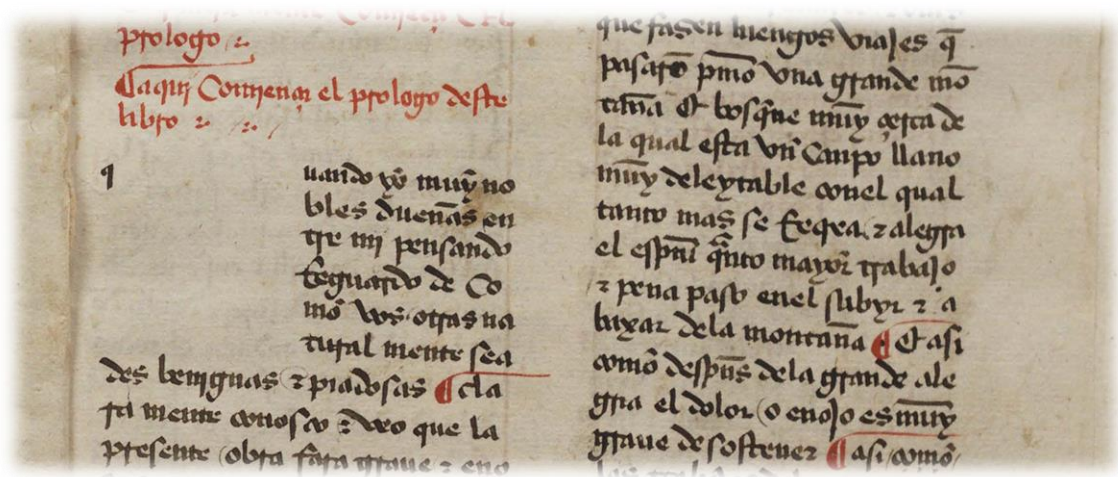 prologo
aquj Comjença el prologo deste
libro
q
uando yo muy no
bles dueñas en
tre mj pensando
Reguardo de Co
mo vos otras na
tural mente sea
des benignas z piadosas cla
ra mente conosco z veo que la
presente obra sera graue z eno
que fasen luengos viajes q̃
pasarõ pmo vna grande mõ
taña Et bosque muy çerca de
la qual esta vñ Canpo llano
muy deleytable conel qual
tanto mas se Recrea z alegra
el espũ qñto mayor trabajo
z pena paso enel subyr z a
baxar dela montaña Et asi
como despũs dela grande ale
gria el dolor o enojo es muy
graue de sostener asi como